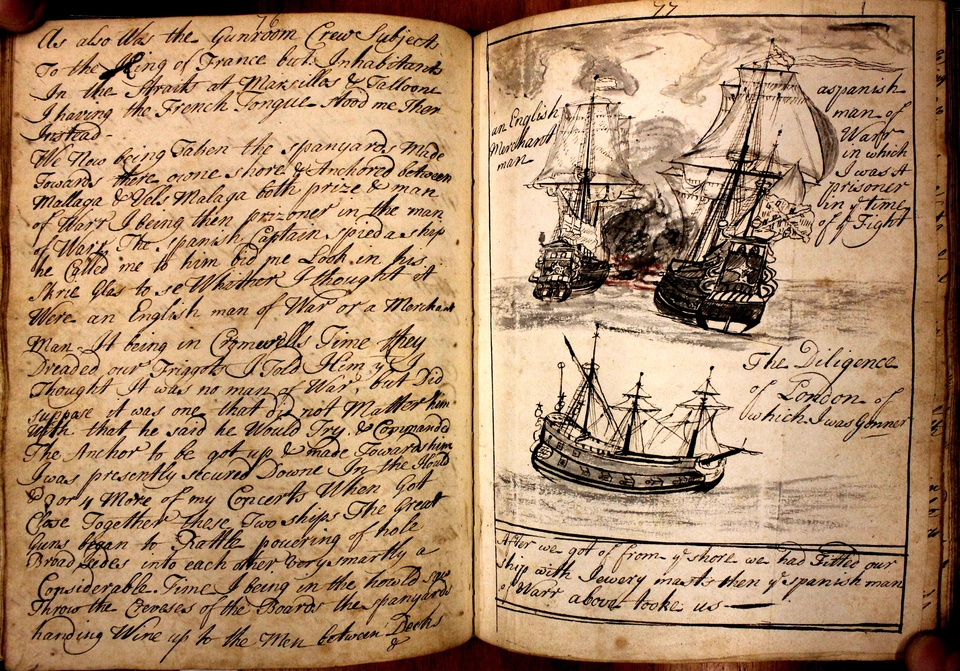 76
As also Was the Gunroom Crew Subjects
To the King of France but Inhabitants
In the Straits at Marsilles & Talloone
I having the French Tongue stood me Then
Instead -
We Now being Taken the spanyards Made
Towards there owne shore & Anchored between
Mallaga & Vels Malaga both prize & man
of Warr I being then prizoner in the man
of Warr The spanish Captain spied a ship
he Called me to him bid me Look in his
Glas to se Whether I thought it
Were an English man of War or a Merchant
Man - It being in Cromwells Time they
Dreaded our Friggots I Told Him yt I
Thought It was no man of War, but Did
suppose it was one that did not Matter him
With that he said he Would Try & Commanded
The Anchor to be got up & made Towards him
I was presently secured Downe In the Hould
& 3 or 4 More of my Concerts When Got
Close Together these Two ships The Great
Guns began to Rattle powering of hole
Broad sides into each other Very smartly a
Considerable Time I being in the howld
Throw the Creveses of the Boards the spanyards
handing Wine up to the Men between Decks
&
77
an English
Merchant
man
a spanish
man of
Warr
in which
I was A
prisoner
in ye time
of ye Fight
The Diligence
of London of
which I was Gonner
After we got of from ye shore we had Fitted our
ship with Jewery masts then ye spanish man
of Warr above tooke us